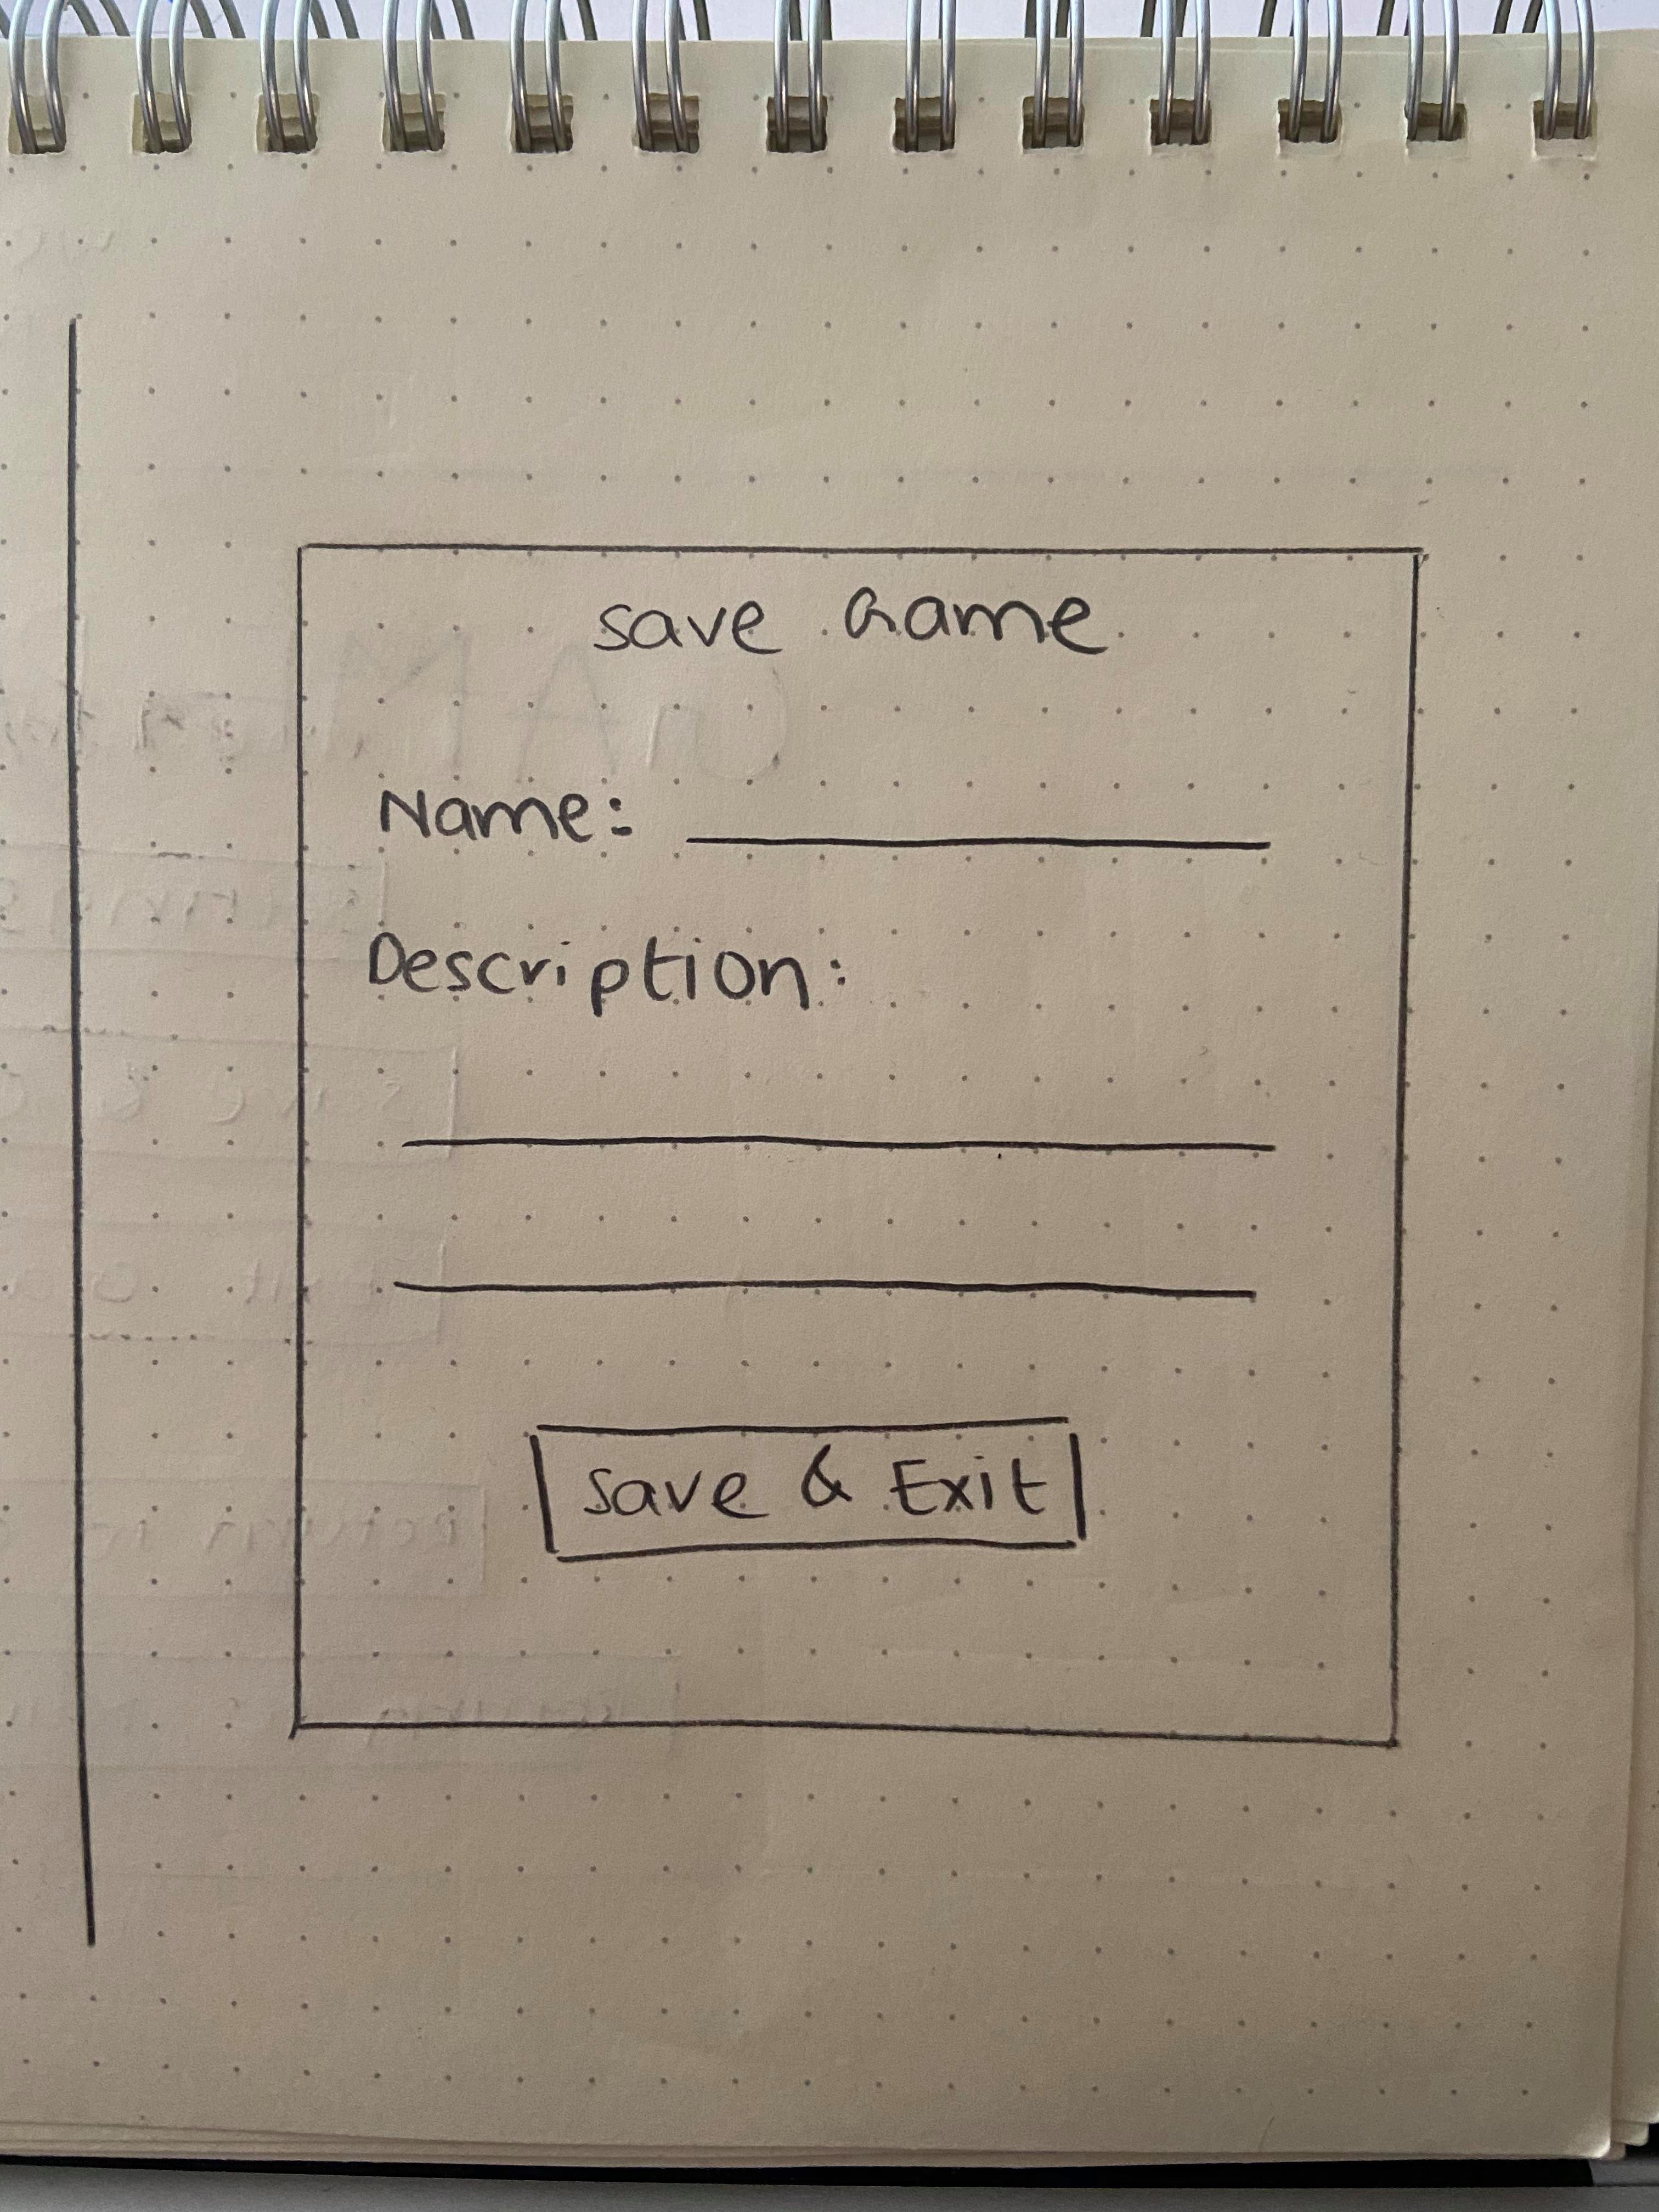 save Game
Name:
Description:
save & Exit